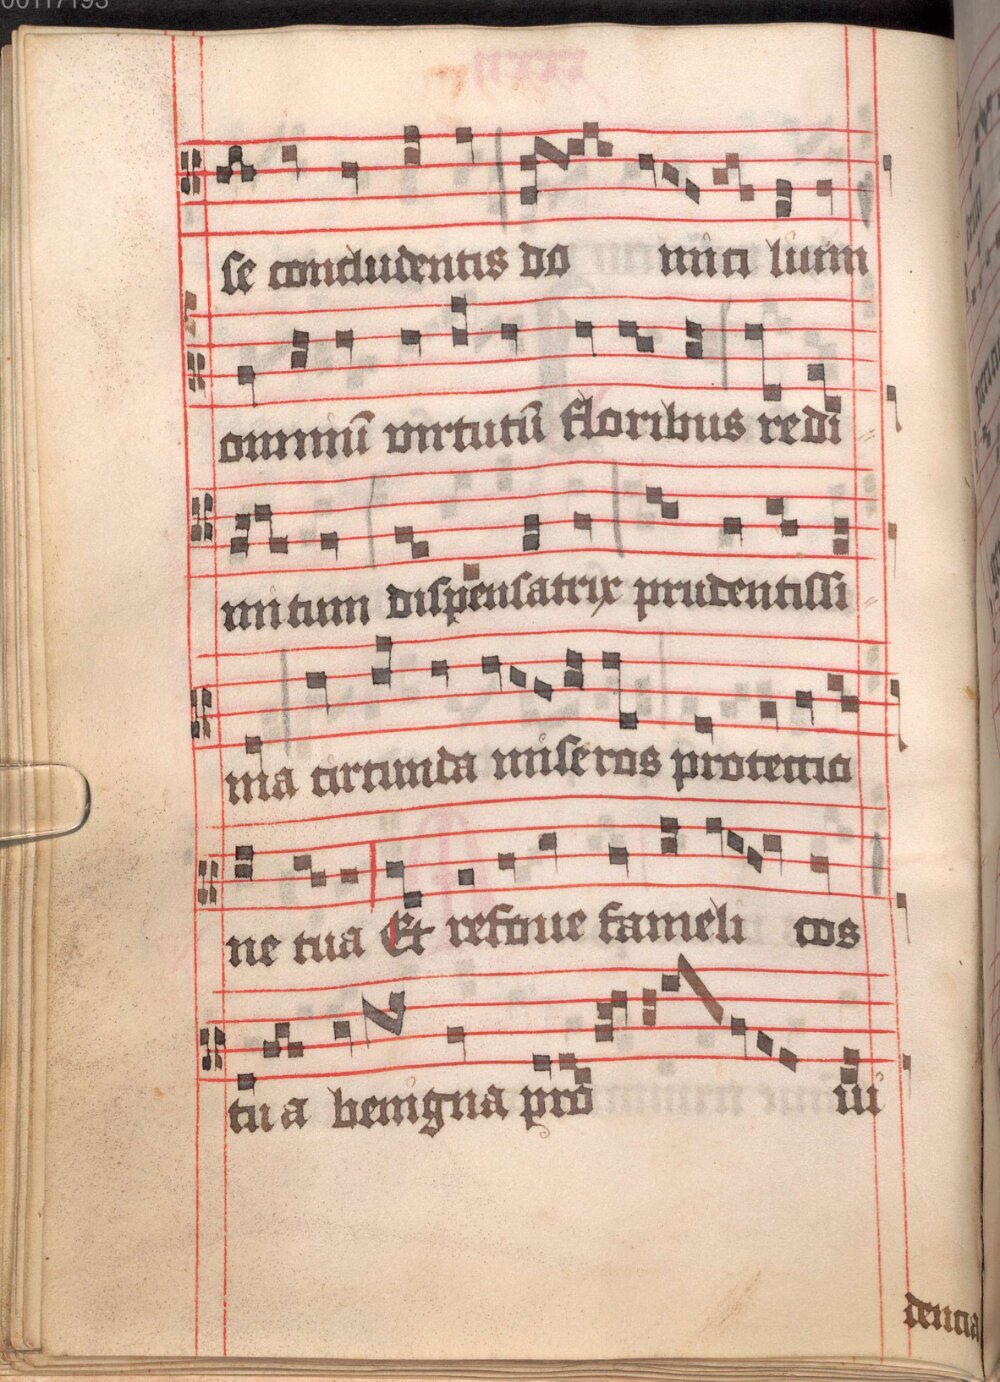 00117193
se concludentis do mici lium
omniū virtutū floribus redi
mitum dispensatrix prudentissi
ma circunda miseros protectio
ne tua Et refoue fameli cos
tua benigna pro ui
dencia